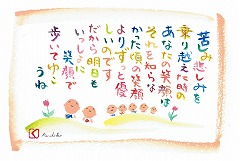 苦しみ悲しみを
乗り越えた時の
あなたの笑顔は
それを知らな
かった頃の笑顔
よりずっと優
しいのです
だから明日も
いっしょに
笑顔で
歩いてゆこ
うね